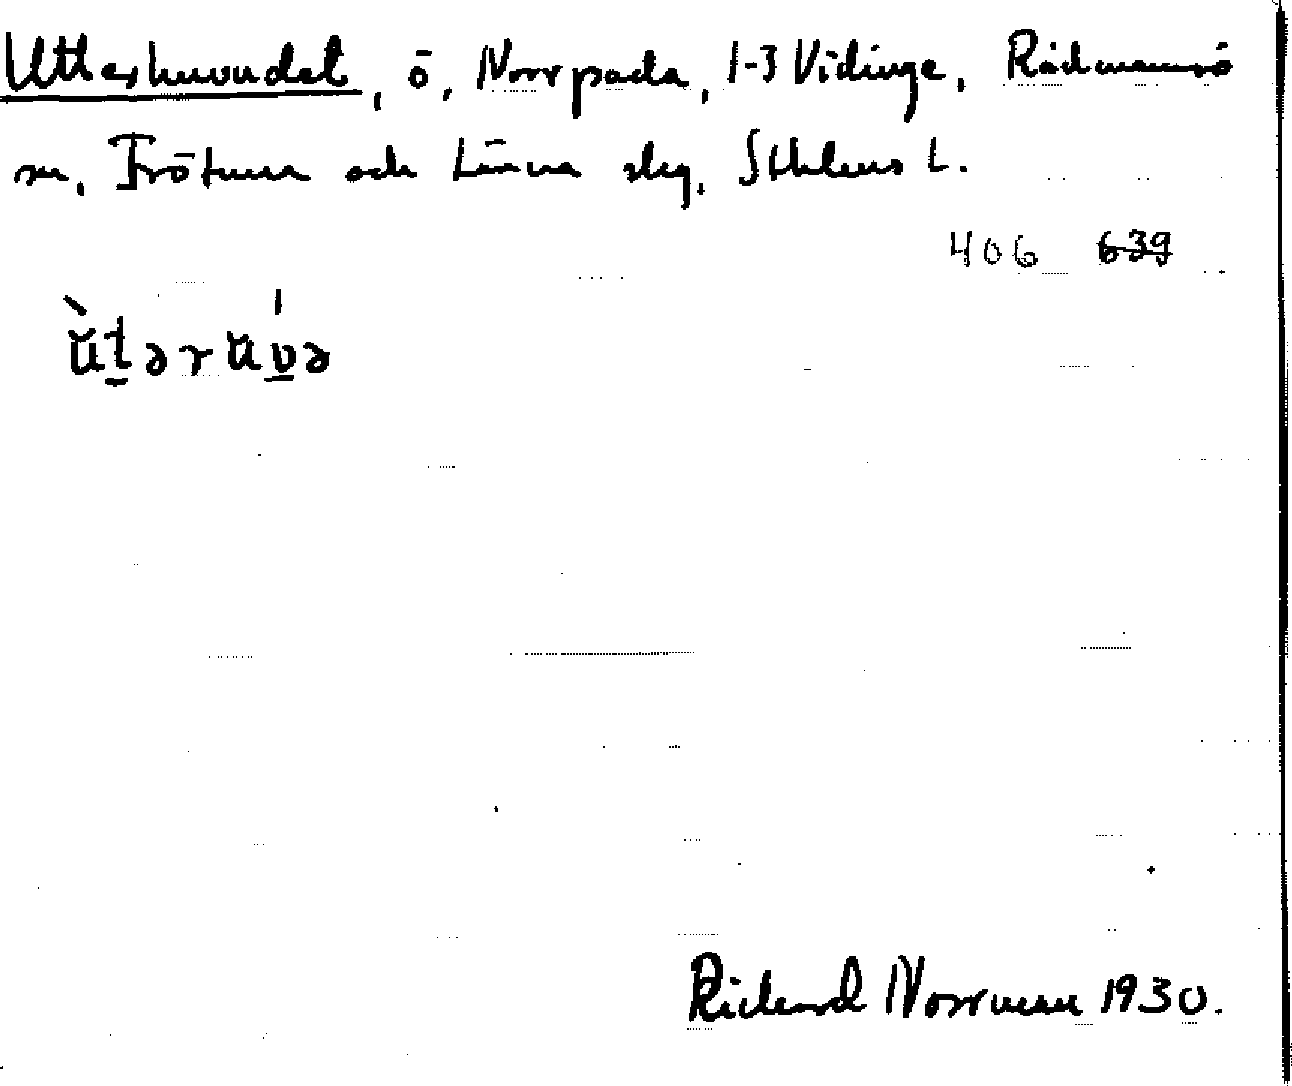 Utterhuvudet, ö, Norrpada, 1-3 Vidinge, Rådmansö
sn, Frötuna och Länna slg, Sthlms l.
406 639
ùtərúvə
Richard Norrman 1930.